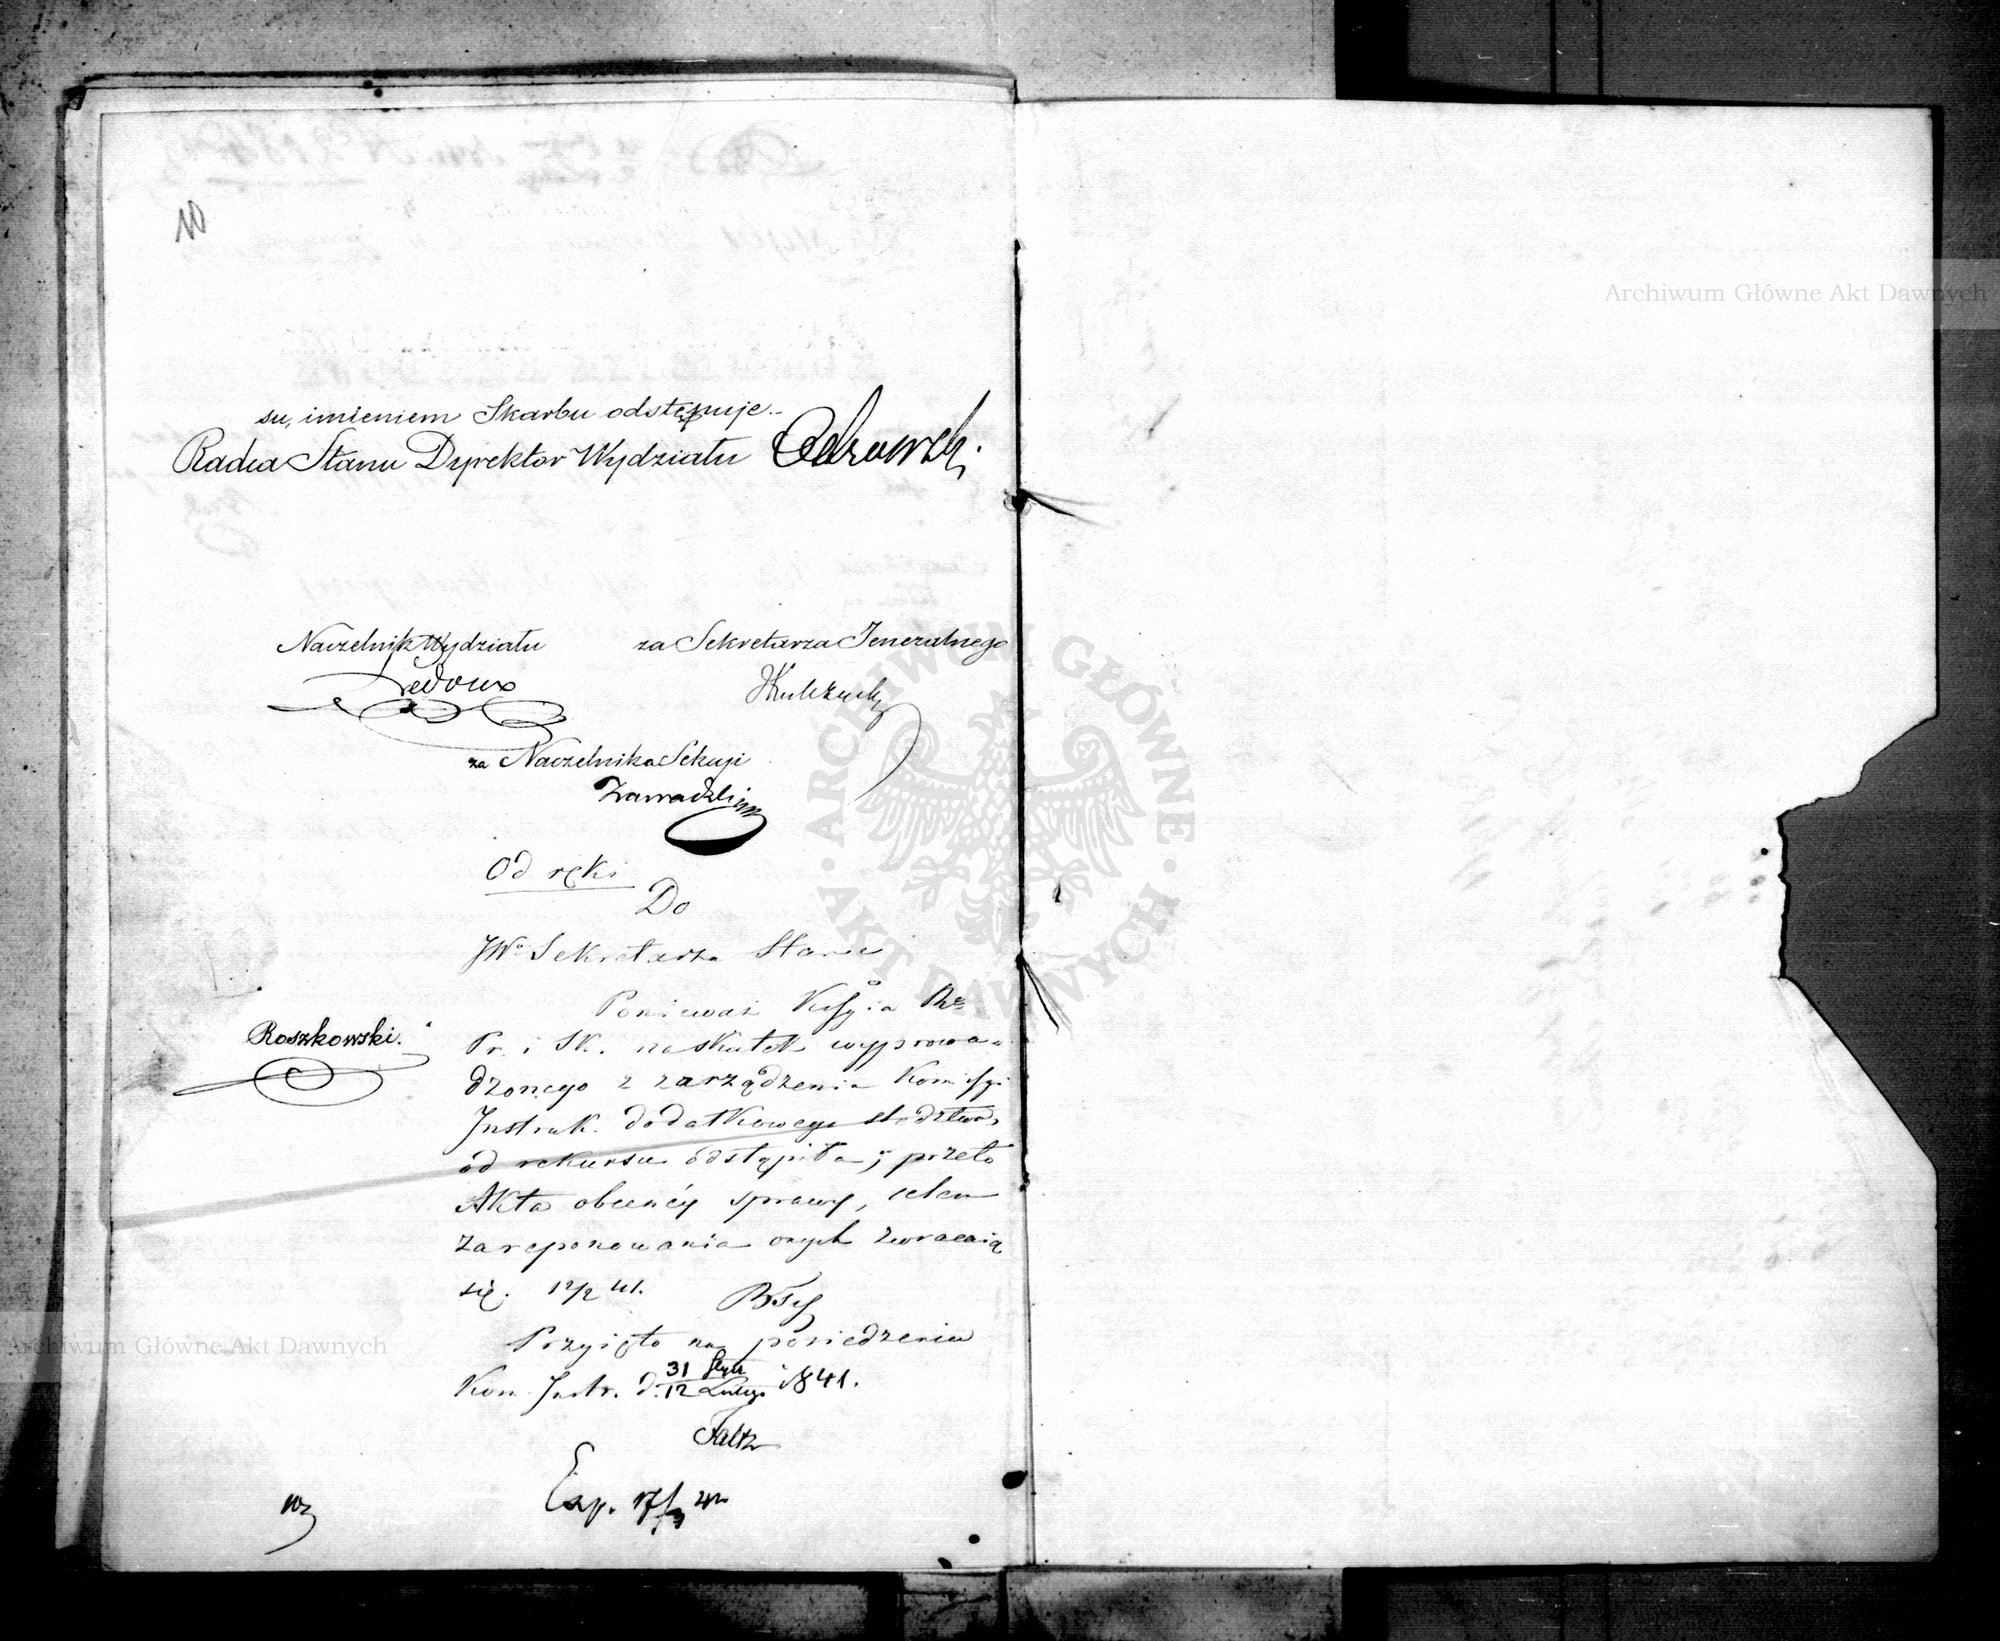 10
su, imieniem Skarbu odstępuje.
Radca Stanu Dyrektor Wydziału
Naczelnik Wydziału
Ledoux
za Sekretarza Jeneralnego
za Naczelnika Sekcyi
Zawadzki
Od ręki
Do
JWo Sekretarza Stanu
Roszkowski.
Ponieważ
Pr. i Sk. na skutek wyprowa-
dzonego z zarządzenia Komissyi
Instruk. dodatkowego śledztwa,
od rekursu odstąpiła; przeto
Akta obecnéy sprawy, celem
zareponowania onych zwracaią
się. 12/2 41.
Przyięto na posiedzeniu
Kom. Instr. d. 31 Stycz / 12 Lutego 1841.
Faltz
Exp. 17/
Archiwum Główne Akt Dawnych
Archiwum Główne Akt Dawnych
ARCHIWUM GŁÓWNE
AKT DAWNYCH